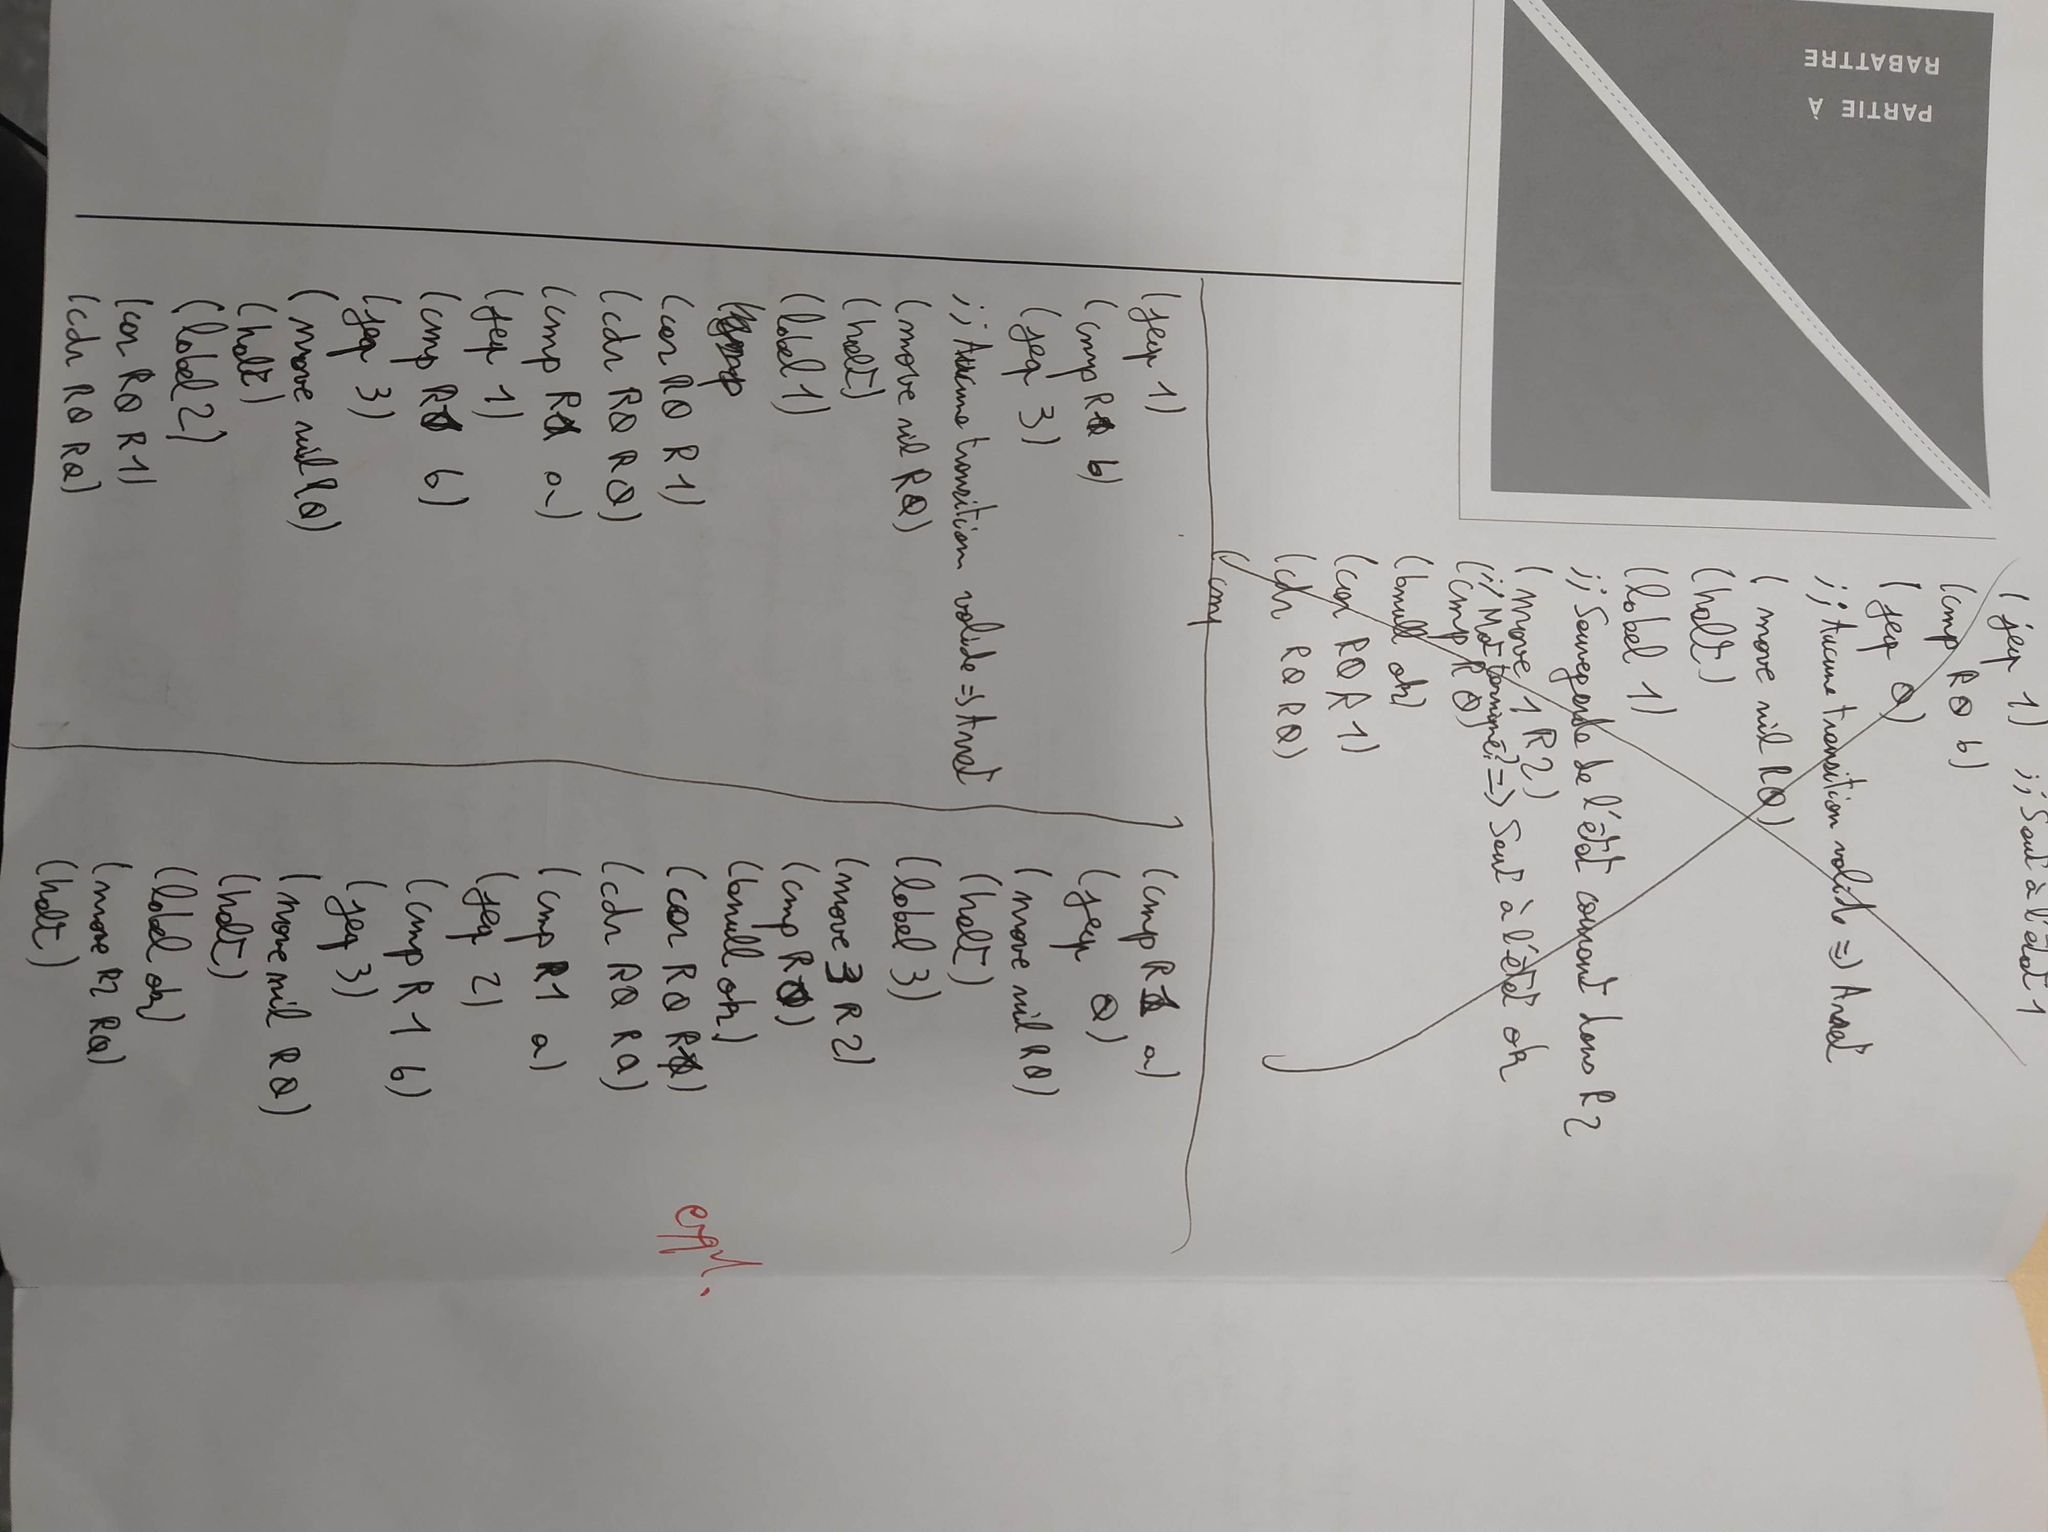 PARTIE À
RABATTRE
(jeq 1) ;; Saut à l'état 1
(cmp R0 b)
(jeq 0)
;; Aucune transition valide => Arret
(move nil R0)
(halt)
(label 1)
;; Sauvegarde de l'état courant dans R2
(move 1 R2)
;; Mot terminé? => Saut à l'état ok
(cmp R0)
(bnull ok)
(car R0 R1)
(cdr R0 R0)
(cmp
(jeq 1)
(cmp R1 b)
(jeq 3)
;; Aucune transition valide => Arret
(move nil R0)
(halt)
(label 1)
(car R0 R1)
(cdr R0 R0)
(cmp R1 a)
(jeq 1)
(cmp R1 b)
(jeq 3)
(move nil R0)
(halt)
(label 2)
(car R0 R1)
(cdr R0 R0)
(cmp R1 a)
(jeq 0)
(move nil R0)
(halt)
(label 3)
(move 3 R2)
(cmp R0)
(bnull ok)
(car R0 R1)
(cdr R0 R0)
(cmp R1 a)
(jeq 2)
(cmp R1 b)
(jeq 3)
(move nil R0)
(halt)
(label ok)
(move R2 R0)
(halt)
expl.